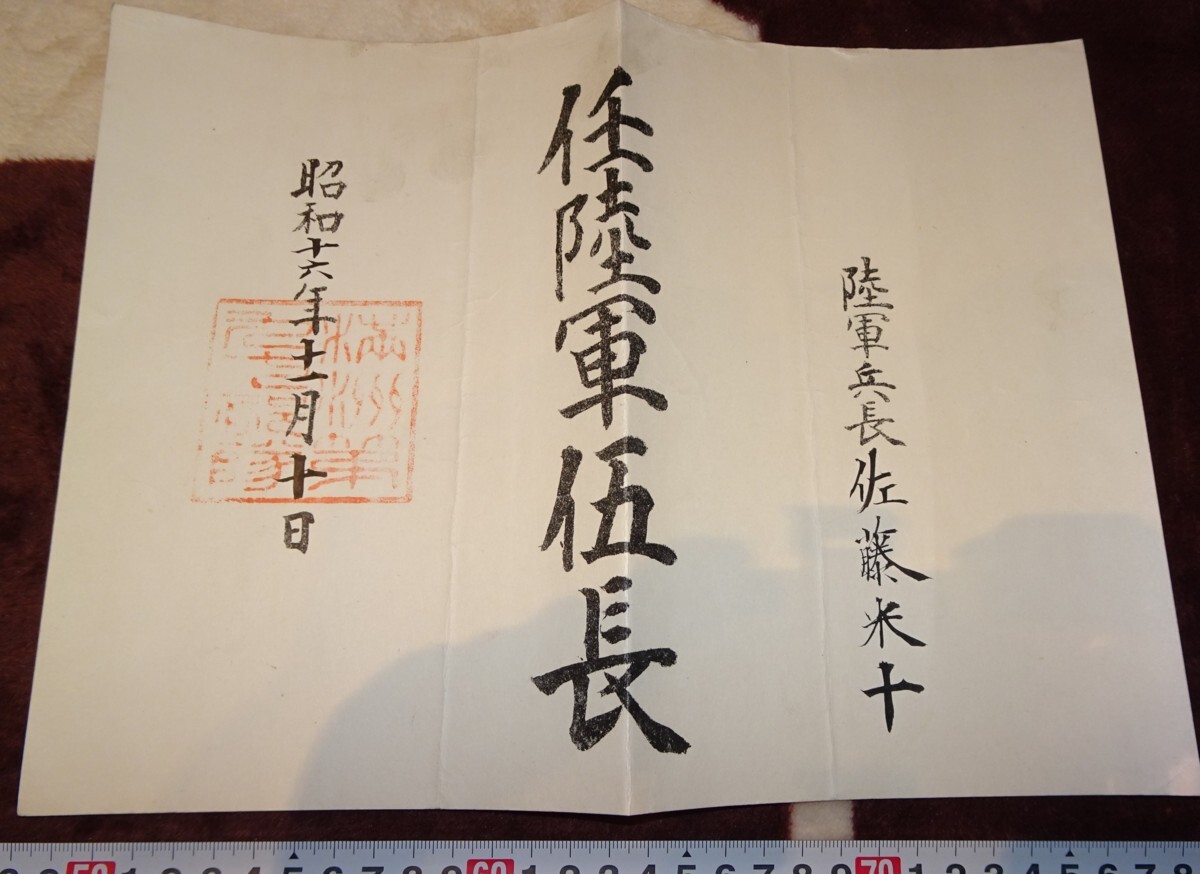 陸軍兵長佐藤米十
任陸軍伍長
昭和十六年十一月十日
50 1 2 3 4 5 6 7 8 9 60 1 2 3 4 5 6 7 8 9 70 1 2 3 4 5 6 7 8